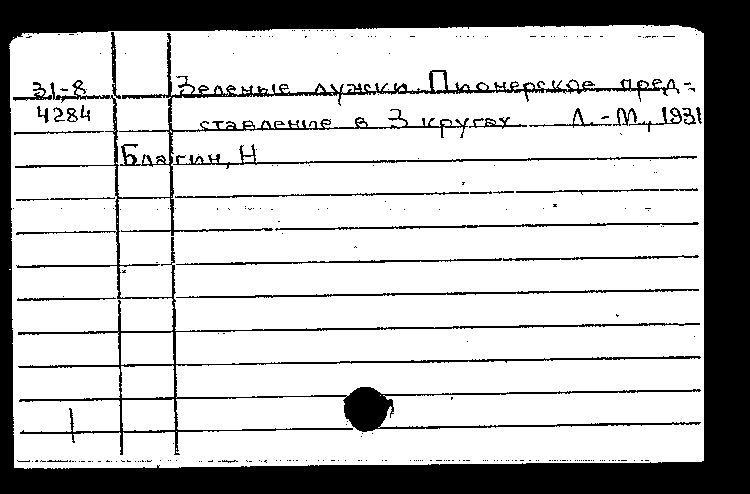 31-8 Зеленые лужки. Пионерское пред-
4284 ставление в 3 кругах Л.-М., 1931
Благин, Н